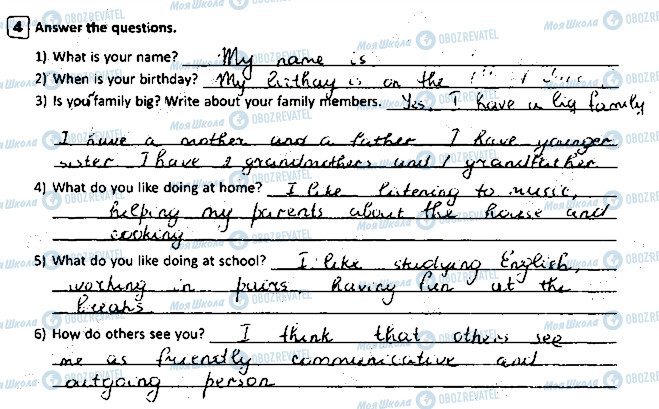 4 Answer the questions.
1) What is your name? My name is
2) When is your birthday? My bithay is on the
3) Is you family big? Write about your family members. Yes, I have a big family
I have a mother and a father I have younger
sister I have 2 grandmothers and 1 grandfather
4) What do you like doing at home? I like listening to music,
helping my parents about the house and
cooking
5) What do you like doing at school? I like studying English,
working in pairs having fun at the
breaks
6) How do others see you? I think that others see
me as friendly communicative and
outgoing person
Моя Школа OBOZREVATEL